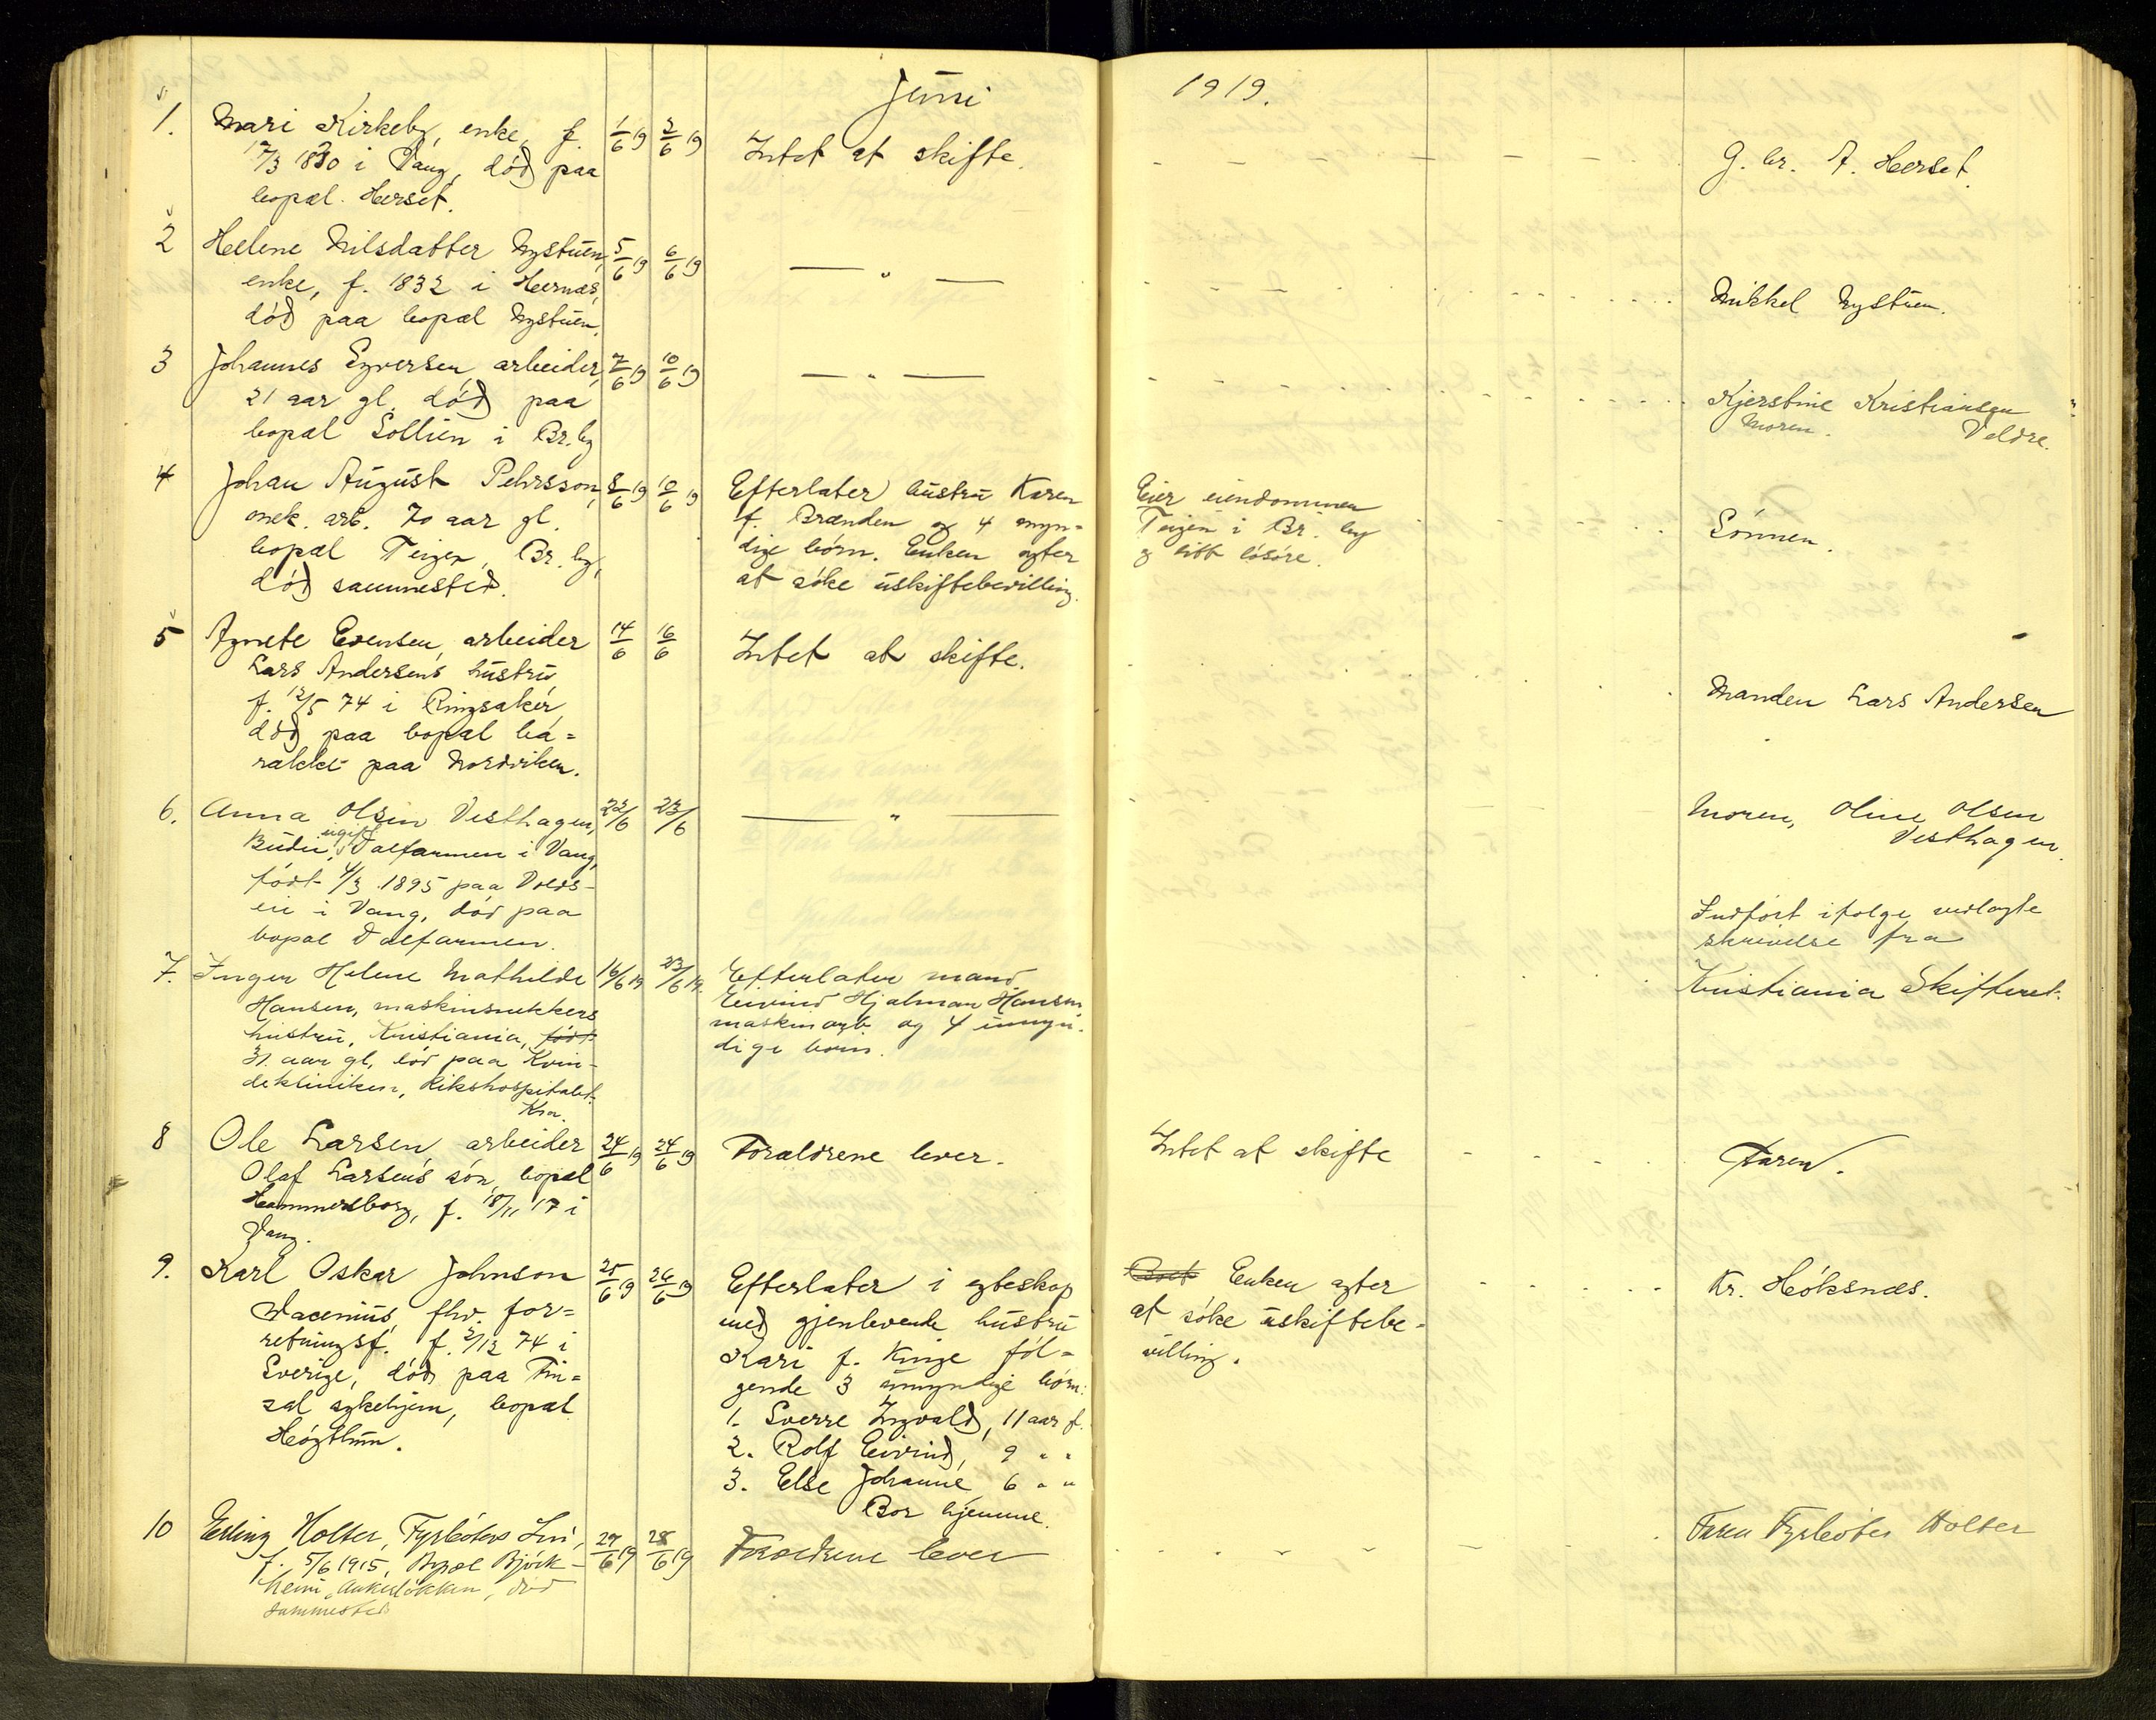 Juni 1919.
1. Mari Kirkeby, enke, f. 1/6 19 2/6 19 Intet at skifte. G. br. A. Herset
17/3 1830 i Vang, död paa
bopæl Herset.
2 Helene Nilsdatter Nystuen, 5/6 19 6/6 19 — " — Mikkel Nystuen.
enke, f. 1832 i Hernæs,
död paa bopæl Nystuen.
3 Johannes Syversen, arbeider, 7/6 19 10/6 19 — " — Kjerstine Kristiansen
21 aar gl. död paa Moren. Veldre.
bopæl Sollien i Br.by
4 Johan August Pehrsson, 8/6 19 10/6 19 Efterlater hustru Karen Eier eiendommen
mek. arb. 70 aar gl. f. Brænden og 4 myn= Teigen i Br. by Sönnen.
bopæl Teigen, Br. by, dige börn. Enken agter og litt lösöre.
död sammested. at söke uskiftebevilling.
5 Agnete Evensen, arbeider 14/6 16/6 Intet at skifte.
Lars Andersens hustru
f. 12/5 74 i Ringsaker, Manden Lars Andersen
död paa bopæl ba=
rakke paa Nordviken.
6. Anna Olsen Vesthagen, 22/6 23/6 — " — Moren, Oline Olsen
Budei, ugift Dalfarmen i Vang, Vesthagen.
födt 4/3 1895 paa Volds-
eie i Vang, död paa
bopæl Dalfarmen.
Indfört ifölge vedlagte
skrivelse fra
Kristiania Skifteret.
7. Inger Helene Mathilde 16/6 19 23/6 19. Efterlater mand
Hansen, maskinsnekkers Eivind Hjalmar Hansen
hustru, Kristiania, födt maskinarb. og 4 umyn-
31 aar gl, död paa Kvin- dige börn.
deklinikken, Rikshospitalet.
Kra.
8 Ole Larsen, arbeider 24/6 19 24/6 19 Forældrene lever. Intet at skifte Faren.
Olaf Larsens sön, bopæl
Hammersborg, f. 18/11 17 i
Vang.
9. Karl Oskar Johnson 25/6 19 26/6 19 Efterlater i egteskap Boet Enken agter Kr. Höksnæs.
fhv. for= med gjenlevende hustru at söke uskiftebe-
retningsf. f. 2/12 74 i Kari f. Kinge föl= villing.
Sverige, död paa Fin= gende 3 umyndige börn:
sal sykehjem, bopæl 1. Sverre Ingvald, 11 aar f.
Høgtun. 2. Rolf Eivind, 9 " "
3. Else Johanne 6 " "
Bor hjemme.
10 Erling Holter, Fyrböters 27/6 19 28/6 19 Forældrene lever Faren Fyrböter Holter
f. 5/6 1915, Bopæl Björk-
heim, Ankerlökken, död
sammested